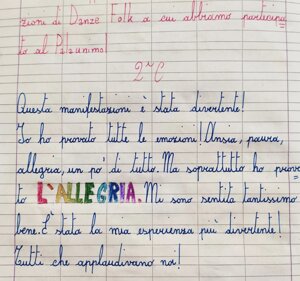 zioni di Danze Folk a cui abbiamo partecipa
to al Palaunimo!
2ªC
Questa manifestazioni è stata divertente!
Io ho provato tutte le emozioni! Ansia, paura,
allegria, un po' di tutto. Ma soprattutto ho prova
to L'ALLEGRIA. Mi sono sentita tantissimo
bene. E' stata la mia esperienza più divertente!
Tutti che applaudivano noi!